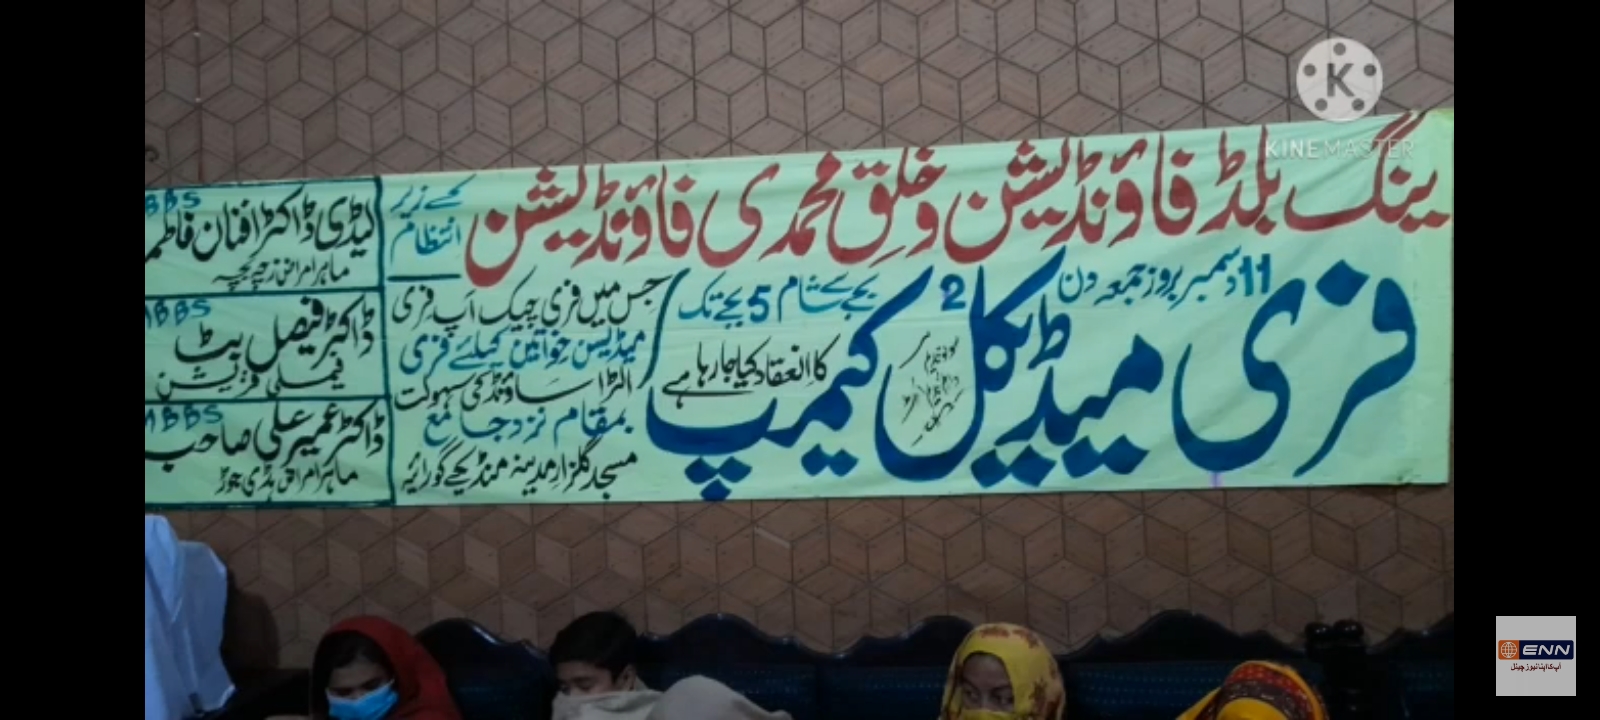 ینگ بلڈ فاؤنڈیشن و خلق محمدی فاؤنڈیشن
کے زیر
انتظام
11 دسمبر بروز جمعہ دن 2 بجے تا شام 5 بجے تک
فری میڈیکل کیمپ
کا انعقاد کیا جا رہا ہے
جس میں فری چیک اپ فری
میڈیسن خواتین کیلئے فری
الٹرا ساؤنڈ کی سہولت
بمقام نزد جامع
مسجد گلزار مدینہ منڈیکے گورائیہ
BBS
لیڈی ڈاکٹر افنان فاطمہ
ماہر امراض زچہ بچہ
MBBS
ڈاکٹر فیصل بٹ
فیملی فزیشن
MBBS
ڈاکٹر عمیر علی صاحب
ماہر امراض ہڈی جوڑ
K
KINEMASTER
ENN
آپ کا اپنا نیوز چینل